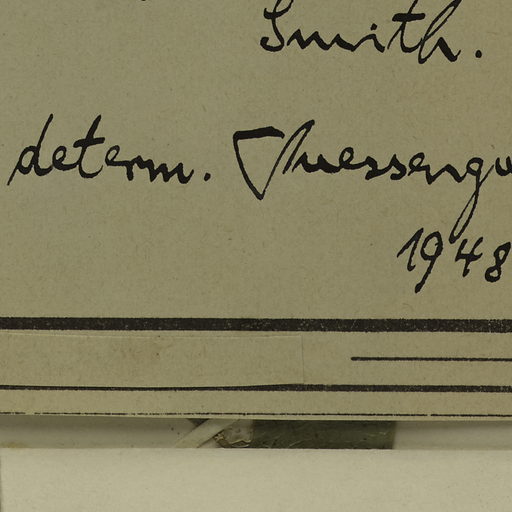 Smith.
determ. Thuessengu
1948